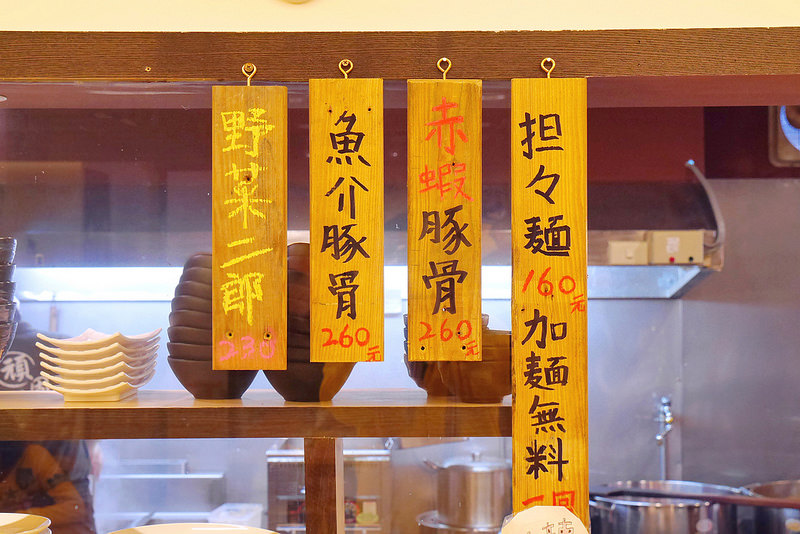 野菜二郎
230
魚介豚骨
260元
赤蝦豚骨
260元
担々麺
160元
加麺無料
一回
頑